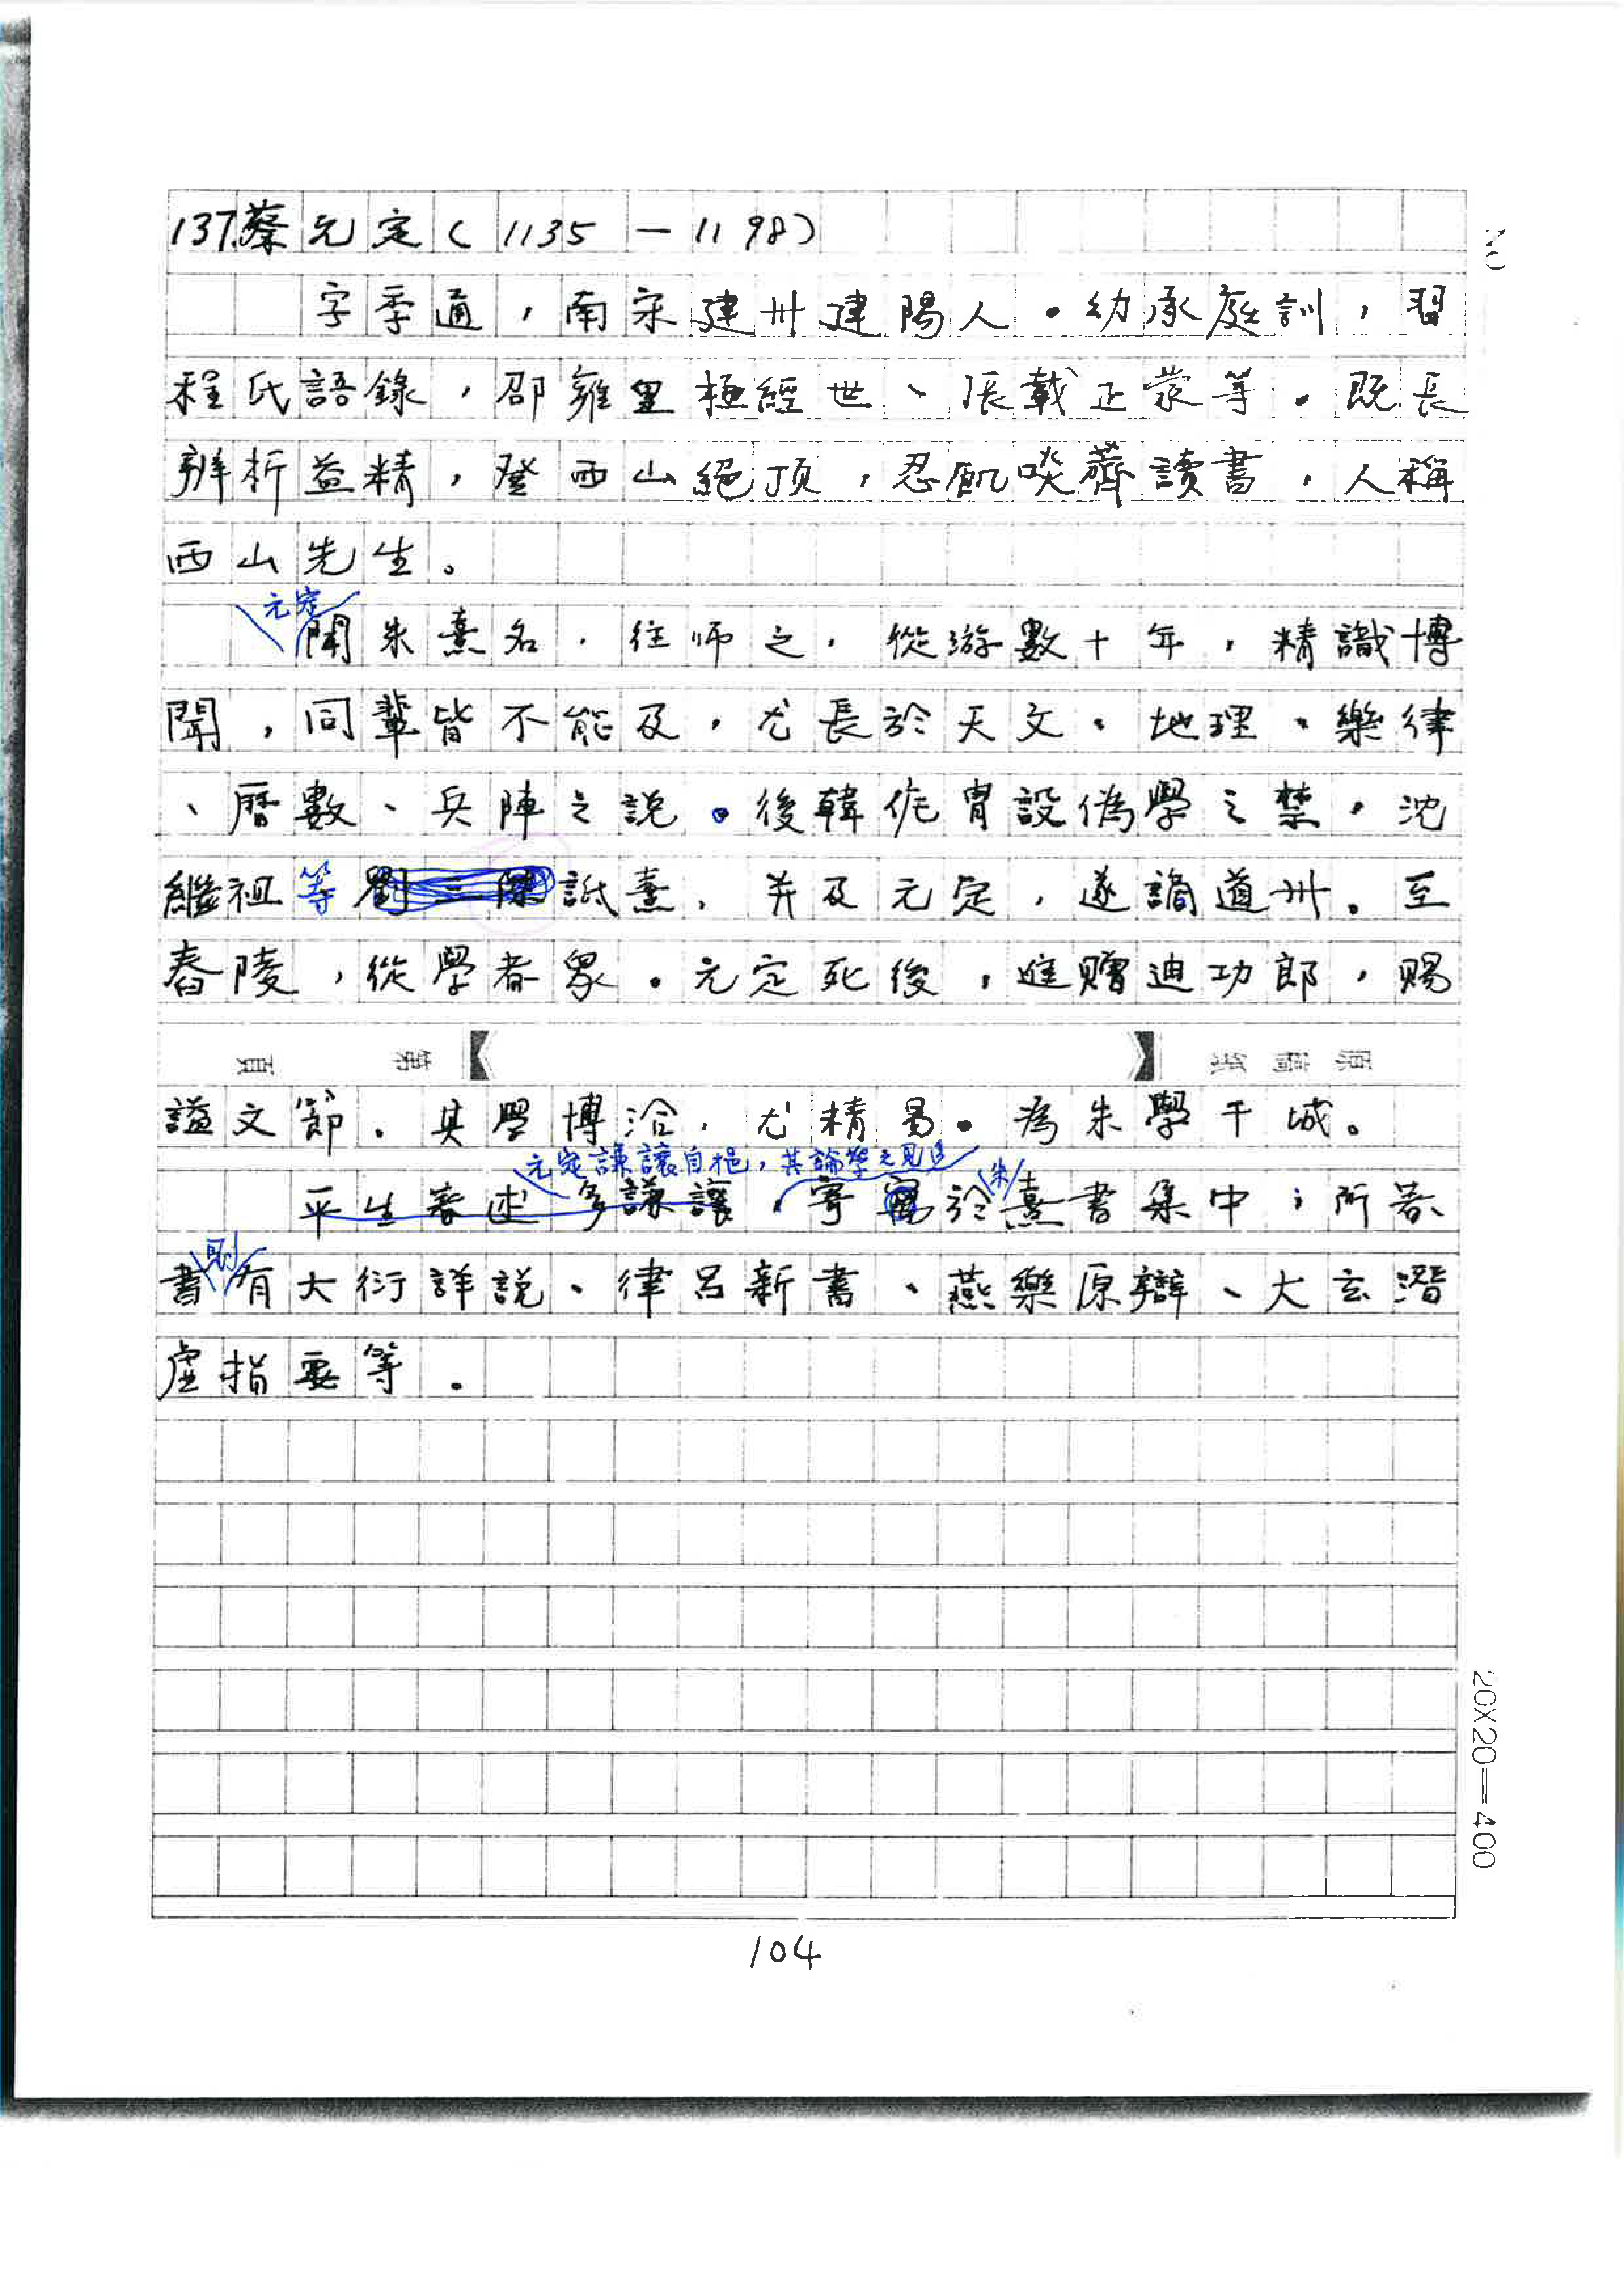 137.蔡元定(1135－1198)
字季通，南宋建州建陽人。幼承庭訓，習
程氏語錄，邵雍皇極經世、張載正蒙等。既長
辨析益精，登西山絕頂，忍飢啖薺讀書，人稱
西山先生。
元定
聞朱熹名，往師之，從游數十年，精識博
聞，同輩皆不能及，尤長於天文、地理、樂律
、曆數、兵陣之說。後韓侂冑設偽學之禁，沈
繼祖等劉三傑詆熹，并及元定，遂謫道州。至
舂陵，從學者眾。元定死後，進贈迪功郎，賜
頁 第 原稿紙
謚文節。其學博洽，尤精易。為朱學干城。
元定謙讓自挹，其論學之見追
朱
平生著述多謙讓，寄寓於熹書集中；所著
則
書有大衍詳說、律呂新書、燕樂原辯、大玄潛
虛指要等。
20X20＝400
104